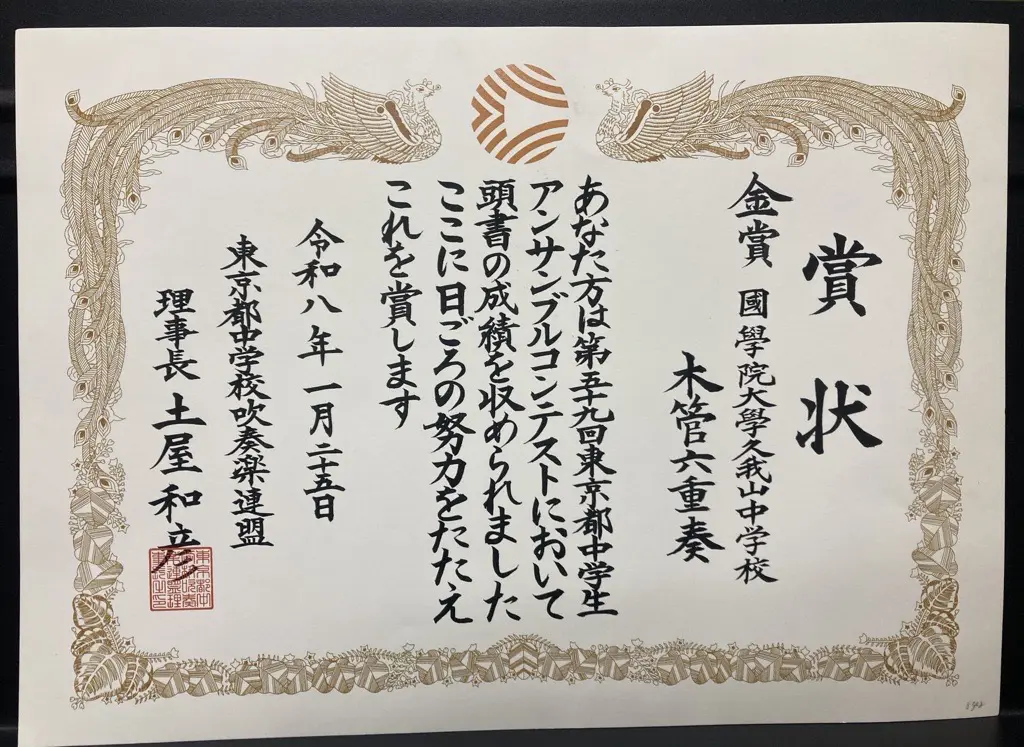 賞状
金賞 國學院大學久我山中学校
木管六重奏
あなた方は第五十九回東京都中学生
アンサンブルコンテストにおいて
頭書の成績を収められました
ここに日ごろの努力をたたえ
これを賞します
令和八年一月二十五日
東京都中学校吹奏楽連盟
理事長 土屋和彦